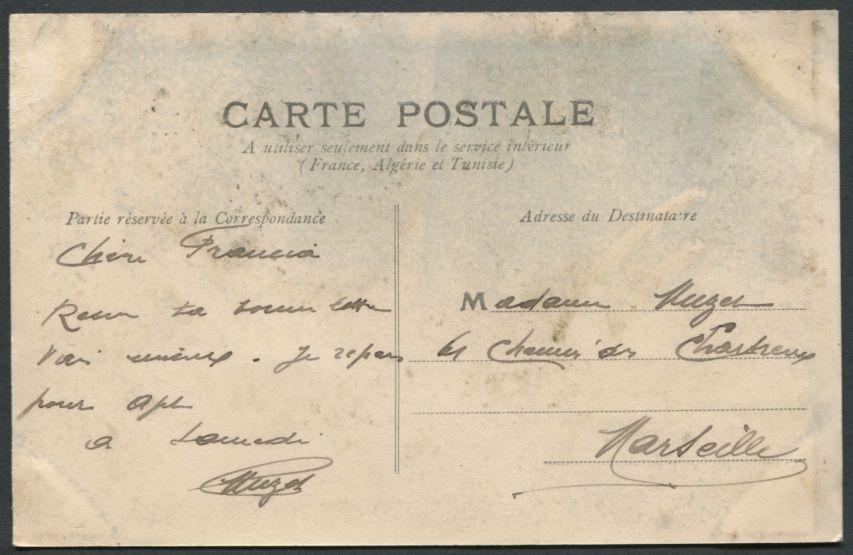 CARTE POSTALE
A utiliser seulement dans le service intérieur
(France, Algérie et Tunisie)
Partie réservée à la Correspondance
Chère Francia
Reçu ta bonne lettre
Vais mieux. Je repars
pour Apt
a Samedi
Muzet
Adresse du Destinataire
Madame Muzet
61 Chemin des Chartreux
Marseille